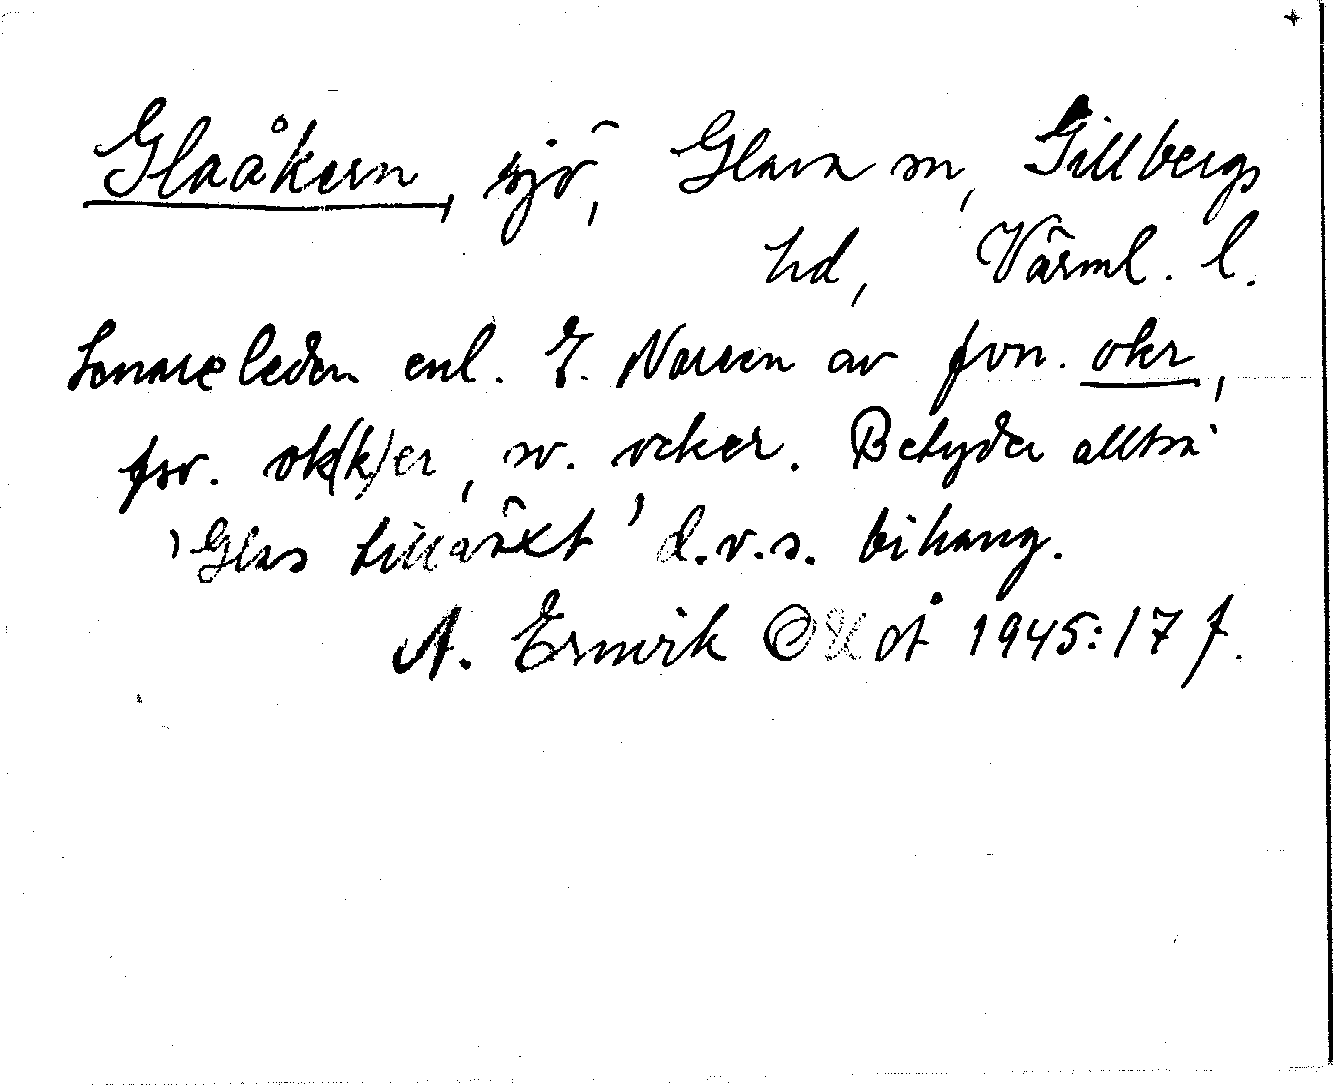 Glaåkern, sjö, Glava sn, Gillbergs
hd, Värml. l.
Senare leden enl. E. Noreen av fvn. okr,
fsv. ok(k)er, sv. ocker. Betyder alltså
'Glas tillväxt' d.v.s. bihang.
A. Ernvik OUoå 1945:17 f.